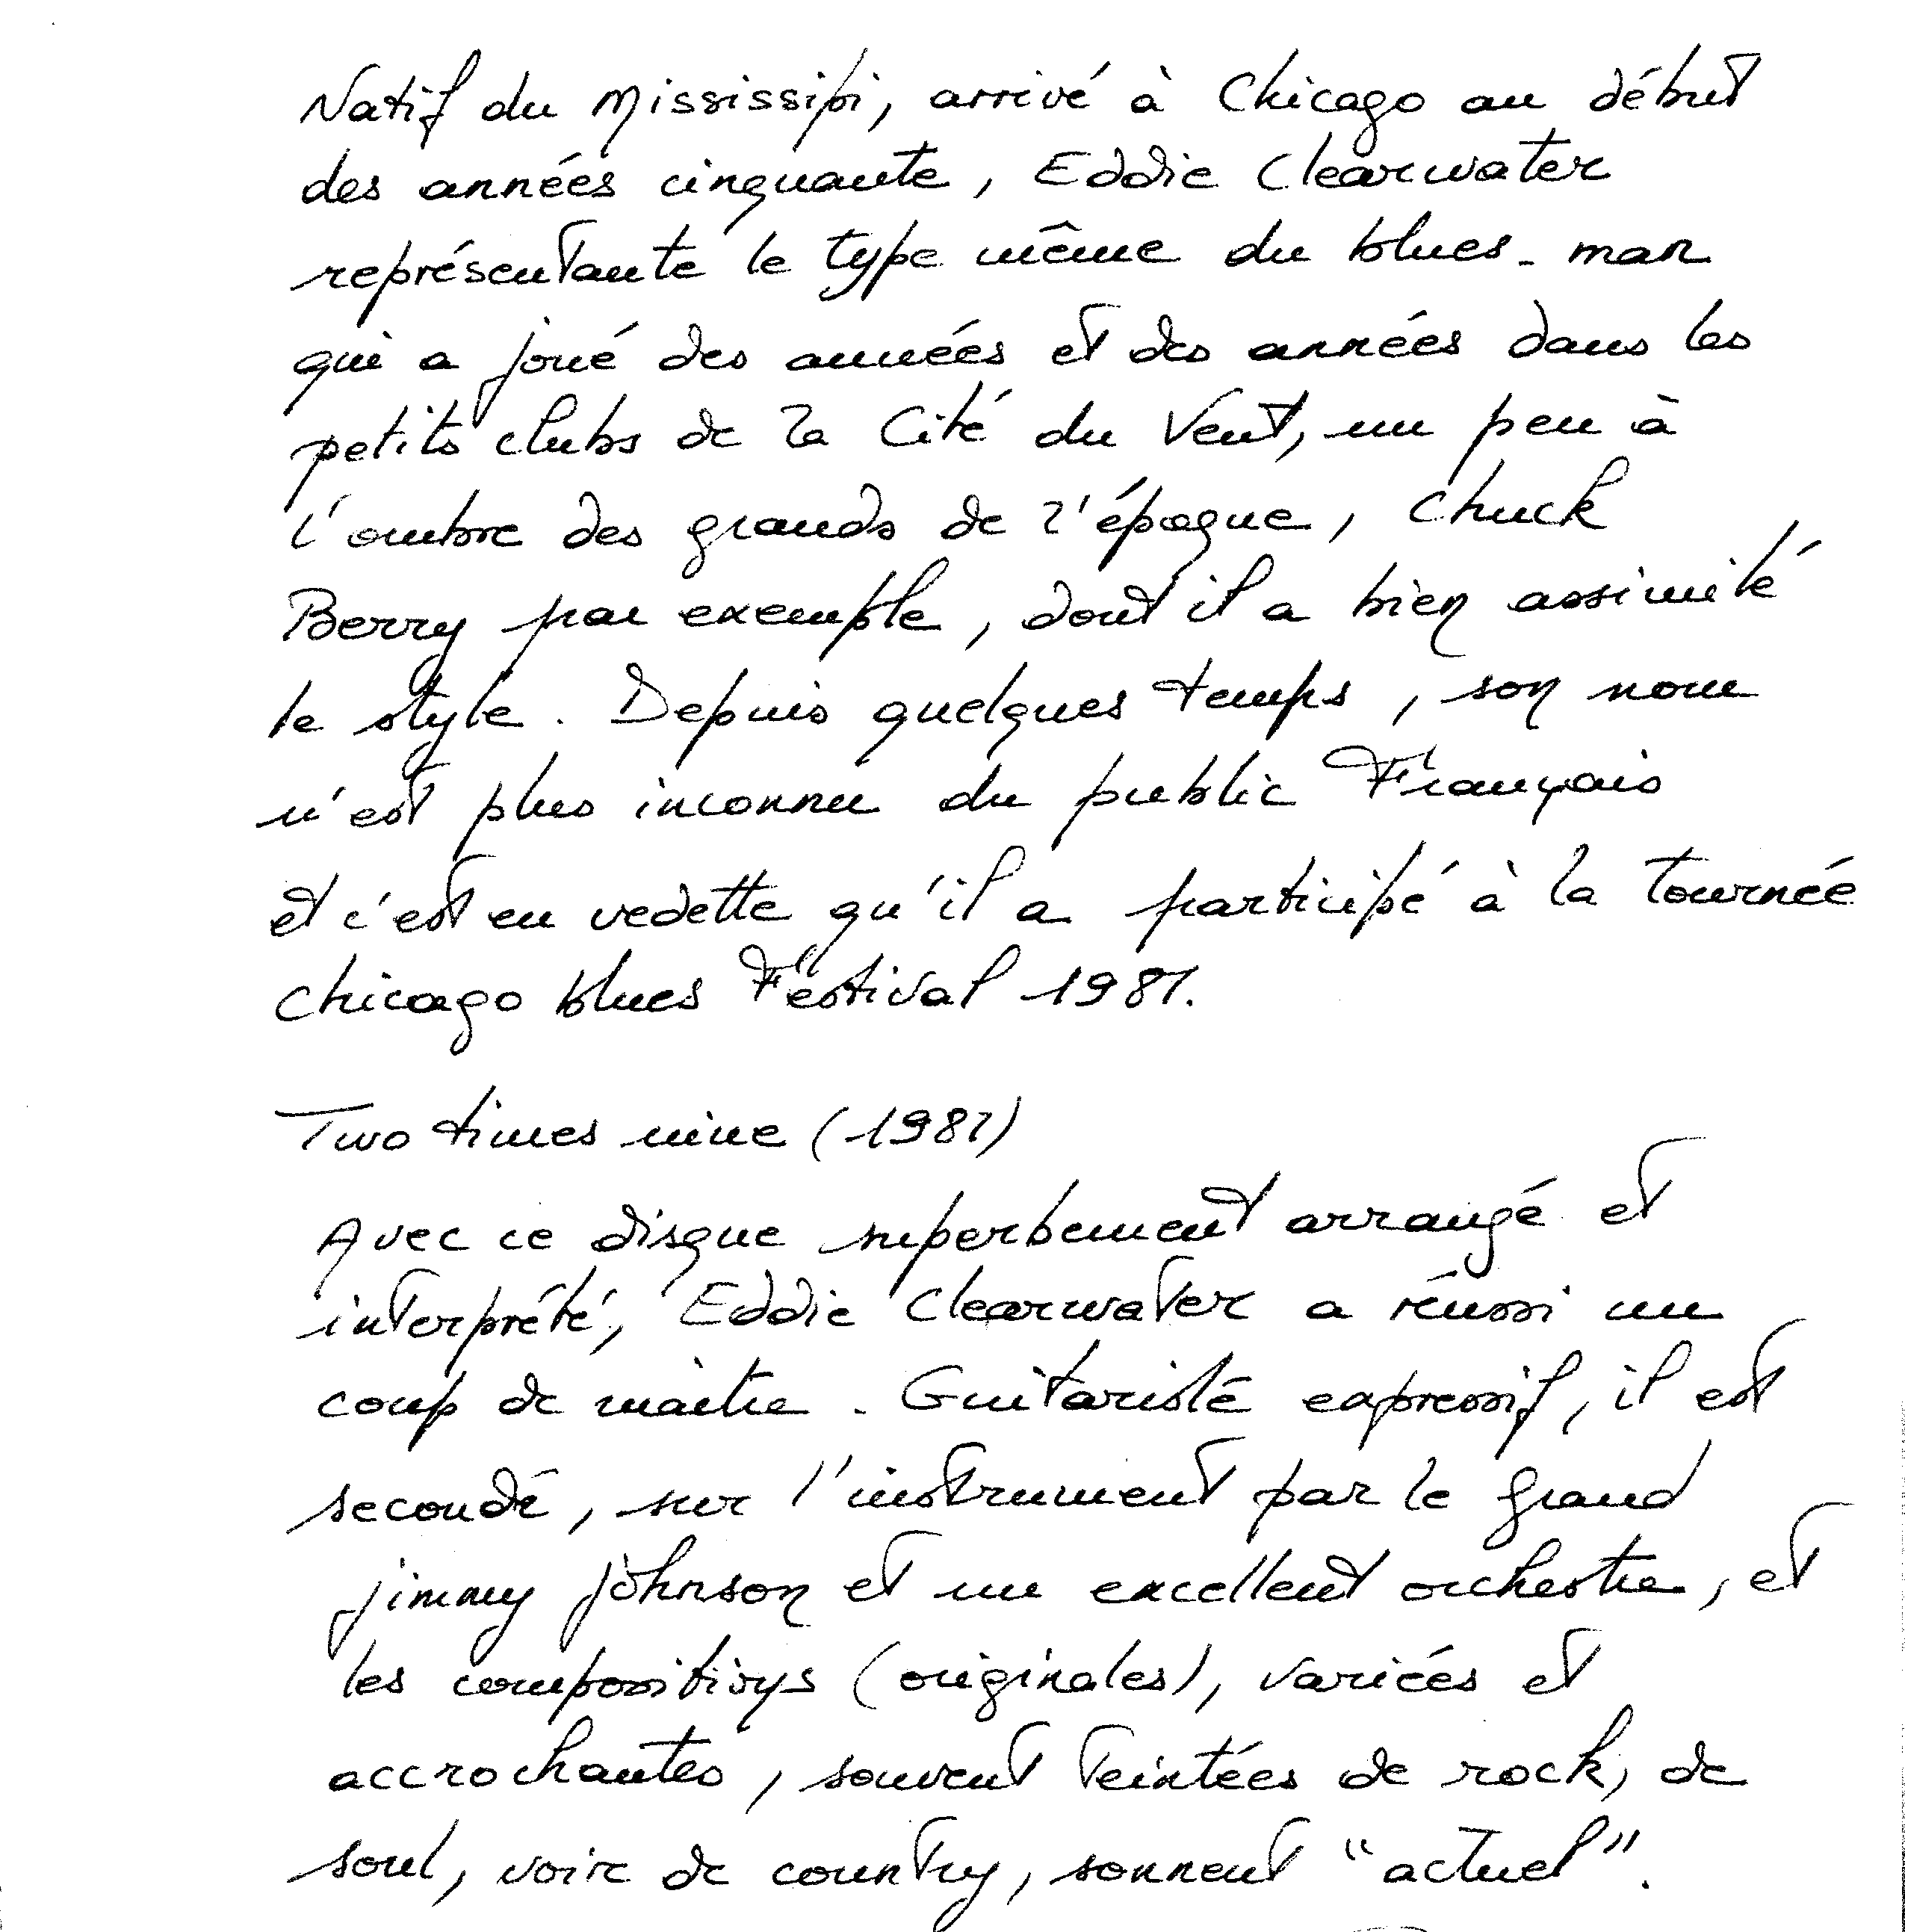 Natif du Mississipi, arrivé à Chicago au début
des années cinquante, Eddie Clearwater
représentante le type même du blues-man
qui a joué des années et des années dans les
petits clubs de la Cité du Vent, un peu à
l'ombre des grands de l'époque, Chuck
Berry par exemple, dont il a bien assimilé
le style. Depuis quelques temps, son nom
n'est plus inconnu du public Français
et c'est en vedette qu'il a participé à la tournée
Chicago blues Festival 1981.
Two times nine (1981)
Avec ce disque superbement arrangé et
interprété, Eddie Clearwater a réussi un
coup de maître. Guitariste expressif, il est
secondé, sur l'instrument par le grand
jimmy johnson et un excellent orchestre, et
les compositions (originales), variées et
accrochantes, souvent teintées de rock, de
soul, voire de country, sonnent "actuel".